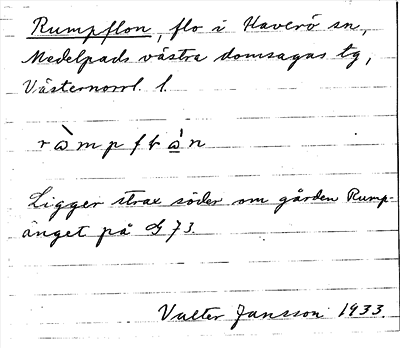 Rumpflon, flo i Haverö sn,
Medelpads västra domsagas tg,
Västernorrl. l.
Ligger strax söder om gården Rump-
änget på G 73.
Valter Jansson 1933.